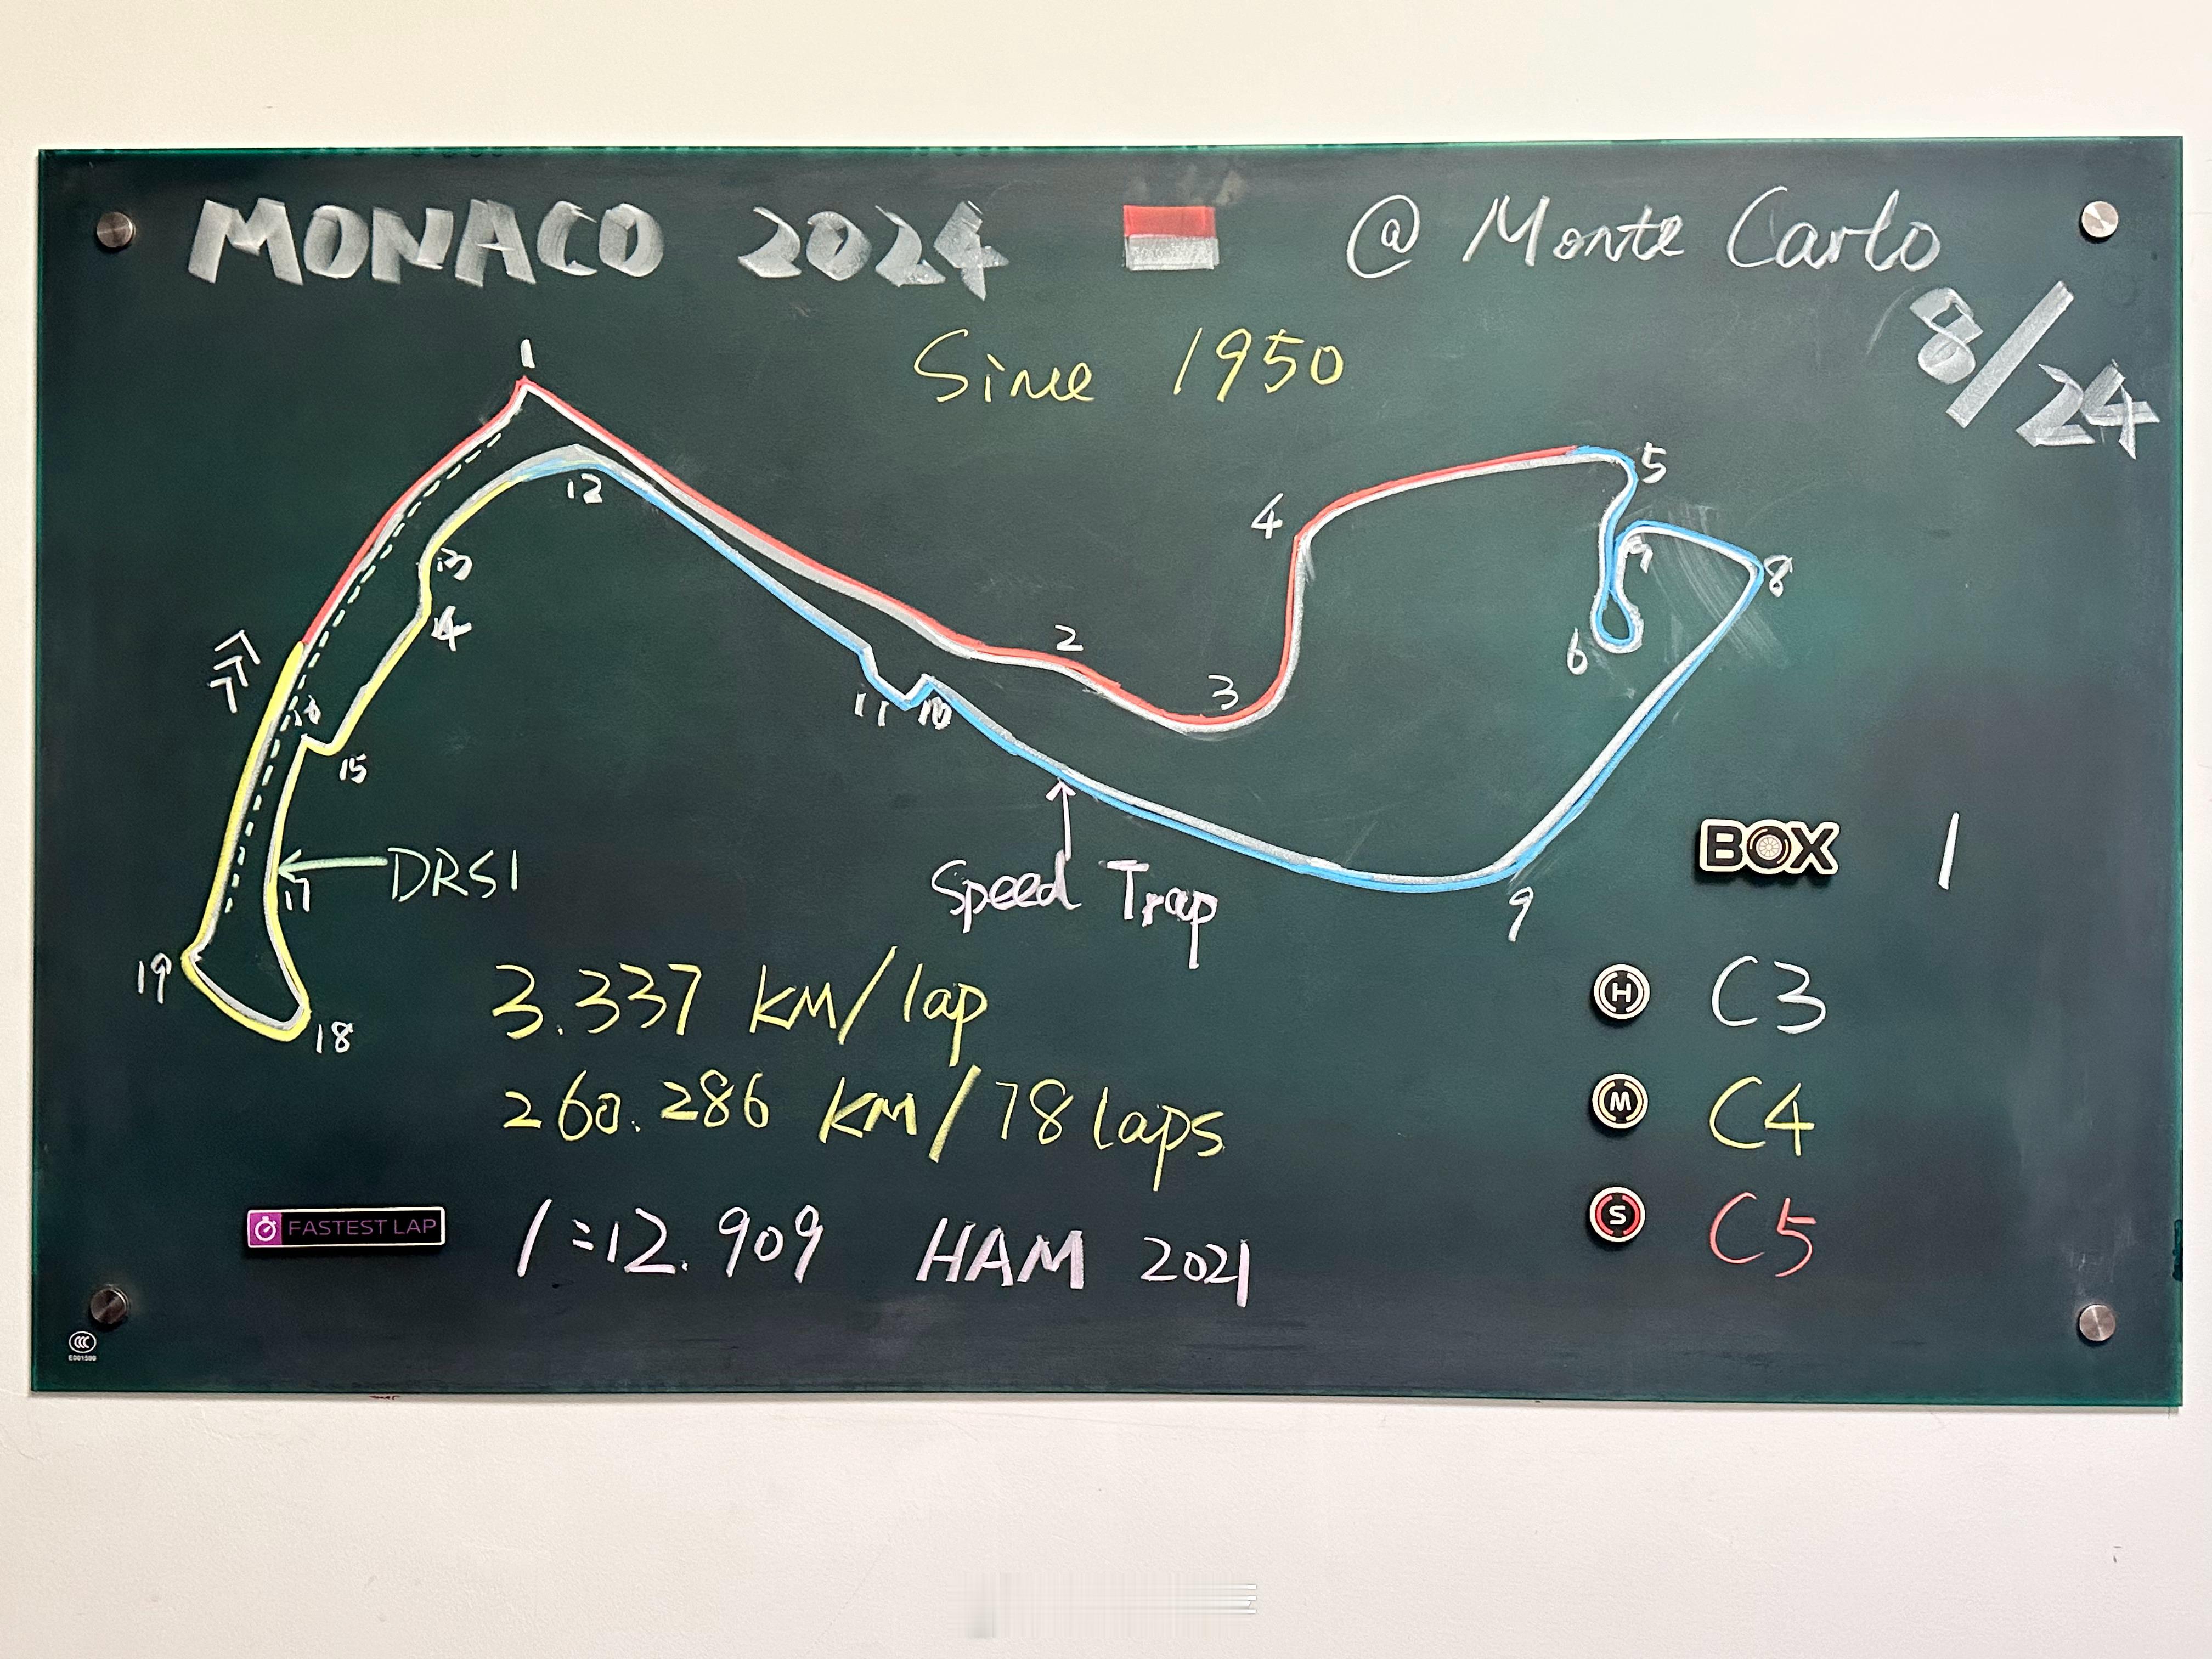 MONACO 2024 @ Monte Carlo
8/24
Since 1950
1
2
3
4
5
6
7
8
9
10
11
12
13
14
15
16
17
18
19
DRS1
Speed Trap
BOX 1
3.337 KM/lap
H C3
260.286 KM/78 laps
M C4
FASTEST LAP 1:12.909 HAM 2021
S C5
CCC
E001500